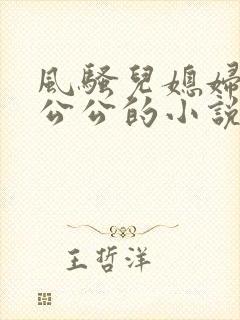 風騷兒媳婦
公公的小說
王哲洋